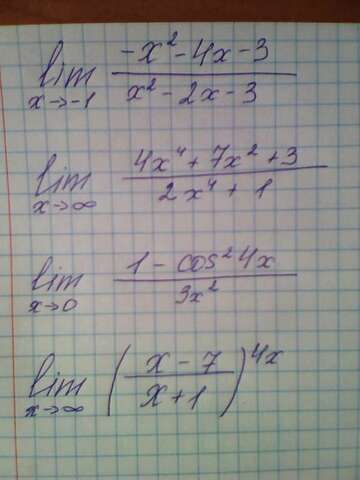 lim x→-1 (-x² - 4x - 3)/(x² - 2x - 3)
lim x→∞ (4x⁴ + 7x² + 3)/(2x⁴ + 1)
lim x→0 (1 - cos² 4x)/(3x²)
lim x→∞ ((x - 7)/(x + 1))^(4x)